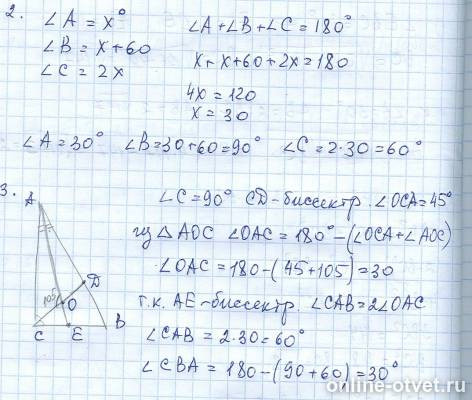 2. ∠A = x°
∠B = x+60
∠C = 2x
∠A+∠B+∠C=180°
x+x+60+2x=180
4x = 120
x = 30
∠A=30° ∠B=30+60=90° ∠C=2·30=60°
3.
A
D
105°
O
C E B
∠C=90° CD-биссектр. ∠OCA=45°
из △AOC ∠OAC=180°-(∠OCA+∠AOC)
∠OAC=180-(45+105)=30
т.к. AE-биссектр. ∠CAB=2∠OAC
∠CAB=2·30=60°
∠CBA=180-(90+60)=30°
online-otvet.ru